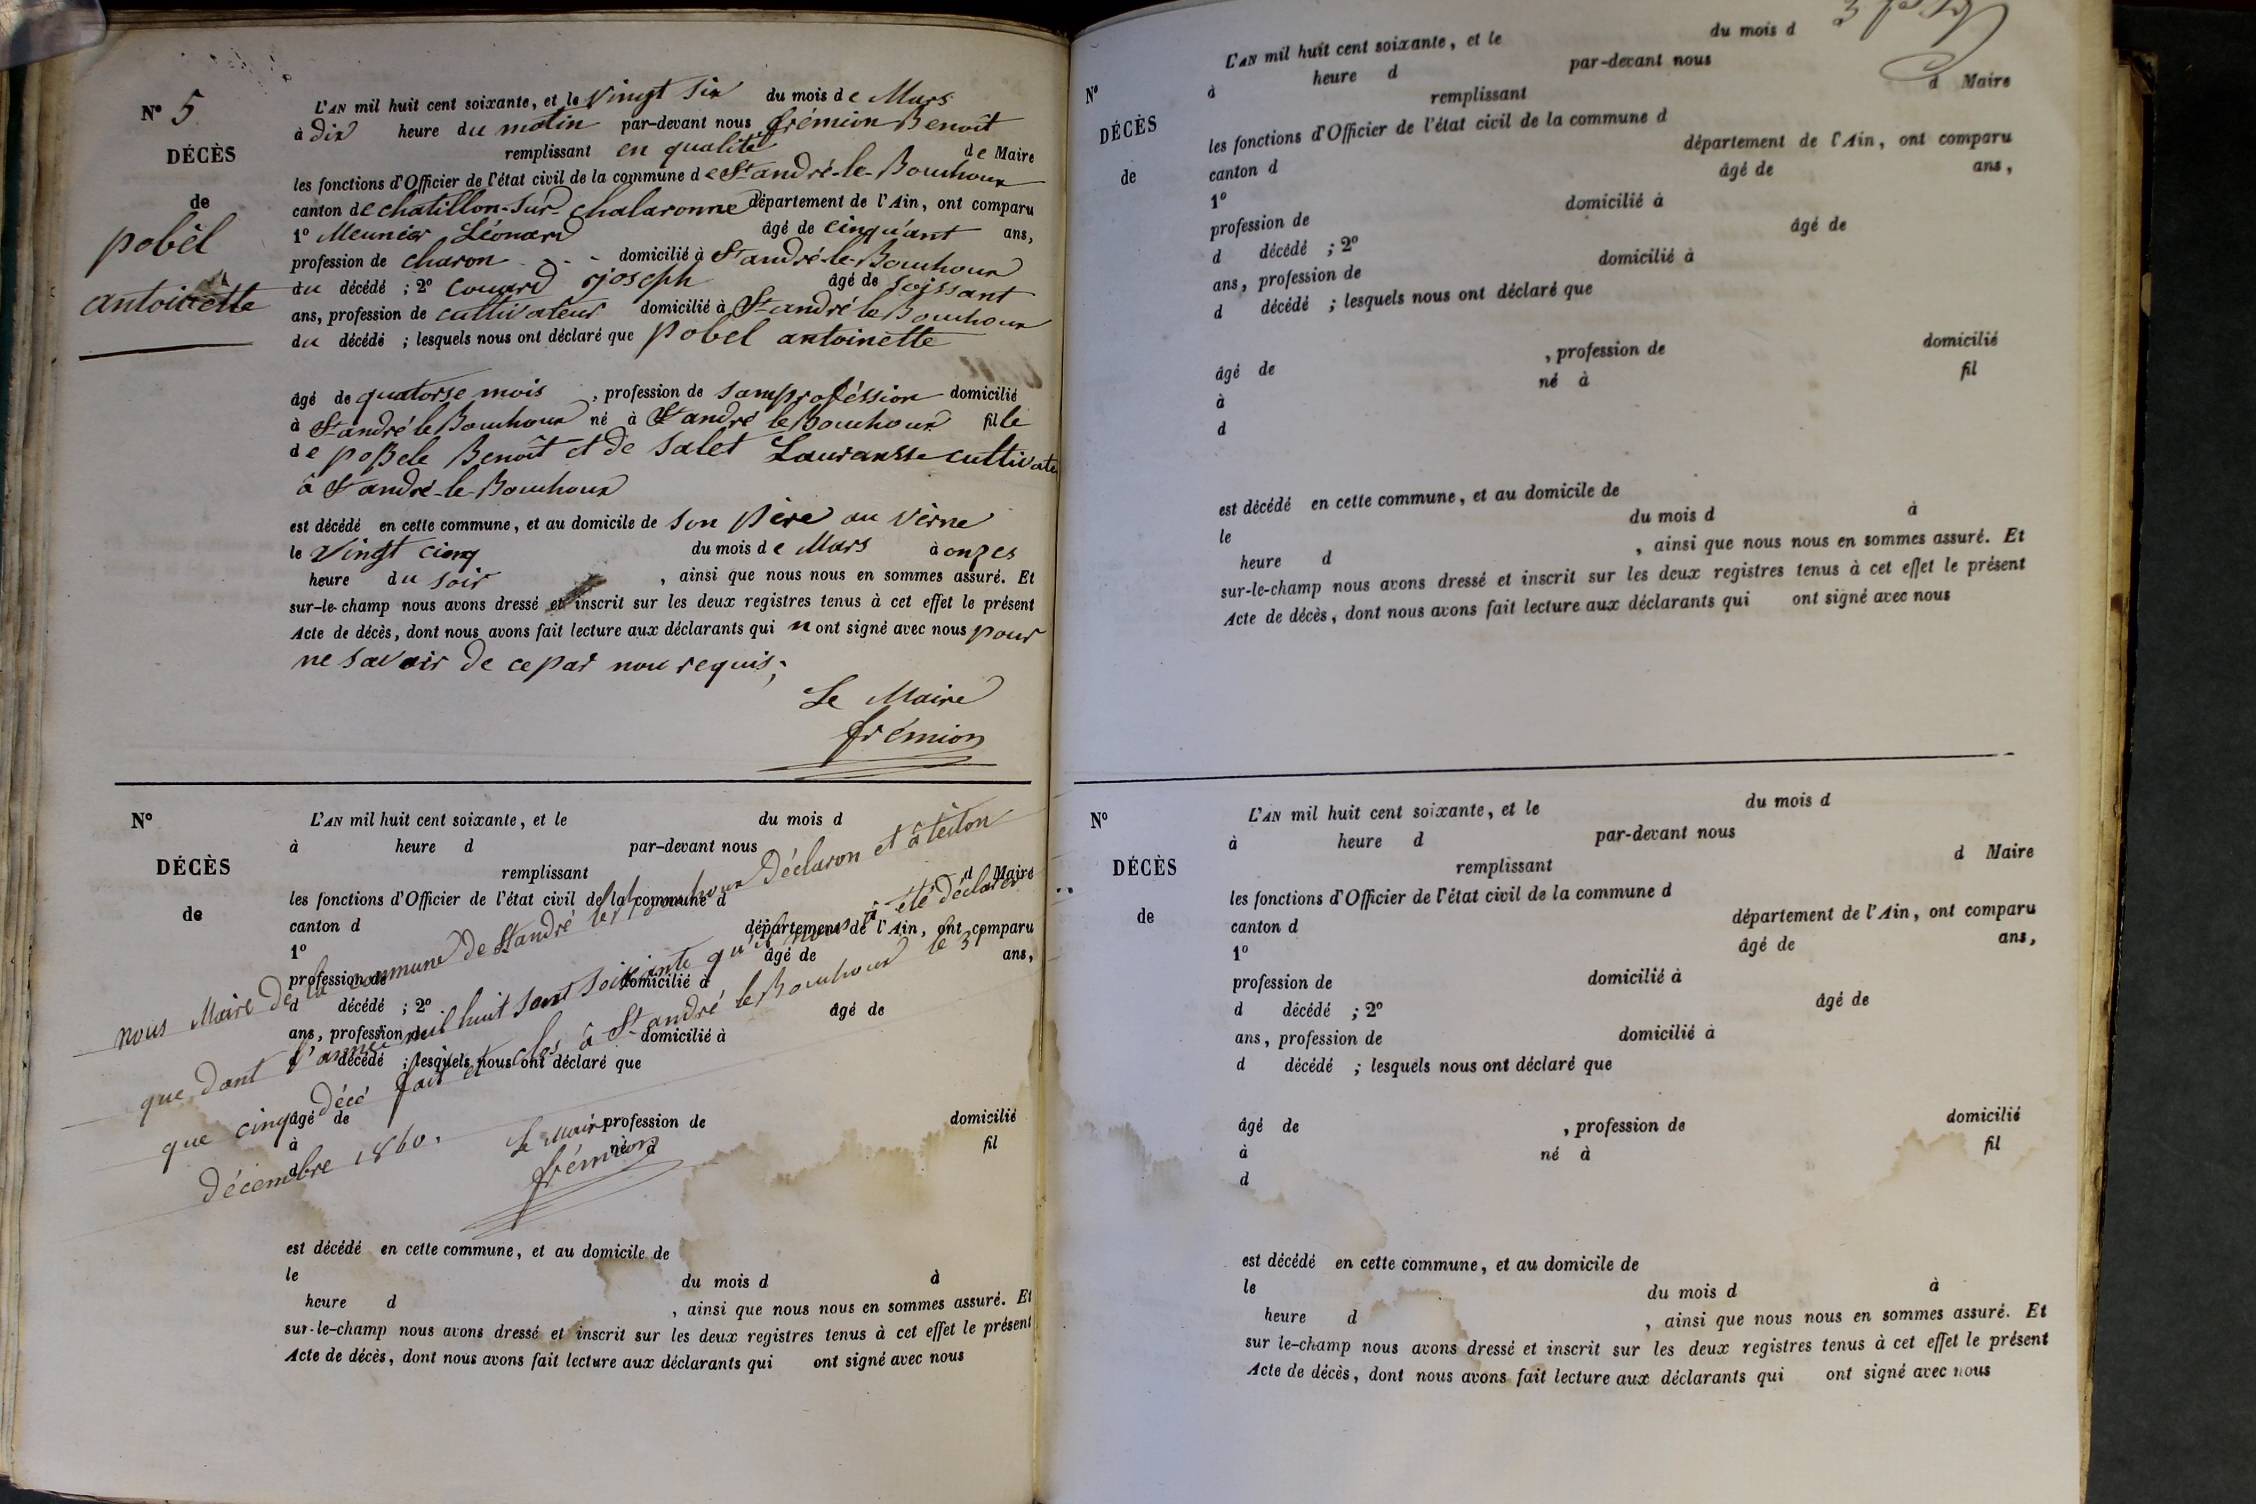 N° 5
DÉCÈS
de
pobel
antoinette
L'AN mil huit cent soixante, et le vingt six du mois de Mars
à dix heure du matin par-devant nous frémion Benoît
remplissant en qualité de Maire
les fonctions d'Officier de l'état civil de la commune de St andré-le-Bouchoux
canton de chatillon-sur-chalaronne département de l'Ain, ont comparu
1° Meunier Léonard âgé de cinquant ans,
profession de charon domicilié à St andré-le-Bouchoux
du décédé ; 2° couard joseph âgé de soissant
ans, profession de cultivateur domicilié à St andré le Bouchoux
du décédé ; lesquels nous ont déclaré que pobel antoinette
âgé de quatorse mois , profession de sanproféssion domicilié
à St andré le Bouchoux né à St andré le Bouchoux fille
de poBele Benoît et de Salet Lauransse cultivate
à St andré-le-Bouchoux
est décédé en cette commune, et au domicile de son père au verne
le vingt cinq du mois de Mars à onzes
heure du soir , ainsi que nous nous en sommes assuré. Et
sur-le-champ nous avons dressé et inscrit sur les deux registres tenus à cet effet le présent
Acte de décès, dont nous avons fait lecture aux déclarants qui n ont signé avec nous pour
ne savoir de ce par nou requis;
Le Maire
frémion
N°
DÉCÈS
de
L'AN mil huit cent soixante, et le du mois d
à heure d par-devant nous
remplissant d Maire
les fonctions d'Officier de l'état civil de la commune d
canton d département de l'Ain, ont comparu
1° âgé de ans,
profession de domicilié à
d décédé ; 2° âgé de
ans, profession de domicilié à
d décédé ; lesquels nous ont déclaré que
âgé de , profession de domicilié
à né à fil
d
nous Maire de la commune de St andré le Bouchoux Déclaron et âteston
que dant l'année mil huit sant soixante qu'il nous à été déclarer
que cinq décé fait et clos à St andré le Bouchoux le 31
décembre 1860.
Le Maire
frémion
est décédé en cette commune, et au domicile de
le du mois d à
heure d , ainsi que nous nous en sommes assuré. Et
sur-le-champ nous avons dressé et inscrit sur les deux registres tenus à cet effet le présent
Acte de décès, dont nous avons fait lecture aux déclarants qui ont signé avec nous
N°
DÉCÈS
de
L'AN mil huit cent soixante, et le du mois d
à heure d par-devant nous
remplissant d Maire
les fonctions d'Officier de l'état civil de la commune d
canton d département de l'Ain, ont comparu
1° âgé de ans,
profession de domicilié à
d décédé ; 2° âgé de
ans, profession de domicilié à
d décédé ; lesquels nous ont déclaré que
âgé de , profession de domicilié
à né à fil
d
est décédé en cette commune, et au domicile de
le du mois d à
heure d , ainsi que nous nous en sommes assuré. Et
sur-le-champ nous avons dressé et inscrit sur les deux registres tenus à cet effet le présent
Acte de décès, dont nous avons fait lecture aux déclarants qui ont signé avec nous
N°
DÉCÈS
de
L'AN mil huit cent soixante, et le du mois d
à heure d par-devant nous
remplissant d Maire
les fonctions d'Officier de l'état civil de la commune d
canton d département de l'Ain, ont comparu
1° âgé de ans,
profession de domicilié à
d décédé ; 2° âgé de
ans, profession de domicilié à
d décédé ; lesquels nous ont déclaré que
âgé de , profession de domicilié
à né à fil
d
est décédé en cette commune, et au domicile de
le du mois d à
heure d , ainsi que nous nous en sommes assuré. Et
sur le-champ nous avons dressé et inscrit sur les deux registres tenus à cet effet le présent
Acte de décès, dont nous avons fait lecture aux déclarants qui ont signé avec nous